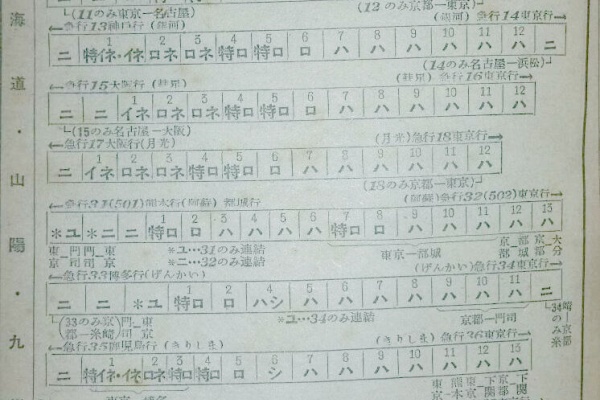 海道・山陽・九
(11のみ東京―名古屋)
(12のみ京都―東京)
←急行13神戸行(銀河)
(銀河)急行14東京行→
1 2 3 4 5 6 7 8 9 10 11 12
ニ 特イネ・イネ ロネ ロネ 特ロ ロ ハ ハ ハ ハ ハ ハ ニ
(14のみ名古屋―浜松)
←急行15大阪行(彗星)
(彗星)急行16東京行→
1 2 3 4 5 6 7 8 9 10 11 12
ニ ニ イネ ロネ ロネ 特ロ 特ロ ロ ハ ハ ハ ハ ハ ハ
(15のみ名古屋―大阪)
←急行17大阪行(月光)
(月光)急行18東京行→
1 2 3 4 5 6 7 8 9 10 11 12
ニ イネ ロネ ロネ 特ロ 特ロ ロ ハ ハ ハ ハ ハ ハ
(18のみ京都―東京)
←急行31(501)熊本行(阿蘇) 都城行
(阿蘇)急行32(502)東京行→
1 2 3 4 5 6 7 8 9 10 11 12 13
*ユ *ニ ニ 特ロ ロ ハ ハ ハ ハ 特ロ ロ ハ ハ ハ ハ ハ
東京―門司 門司―東京
*ユ…31のみ連結
*ニ…32のみ連結
東京―都城
京都―都城 京都―大分
←急行33博多行(げんかい)
(げんかい)急行34東京行→
1 2 3 4 5 6 7 8 9 10 11
ニ ニ *ユ 特ロ ロ ハシ ハ ハ ハ ハ ハ ハ ハ ニ
(33のみ京都―糸崎) 門司―東京
*ユ…34のみ連結
京都―門司
34のみ糸崎―京都
←急行35鹿児島行(きりしま)
(きりしま)急行36東京行→
1 2 3 4 5 6 7 8 9 10 11 12 13
ニ 特イネ・イネ ロネ 特ロ 特ロ ロ シ ハ ハ ハ ハ ハ ハ ハ
東京―熊本 東京―下関 京都―下関